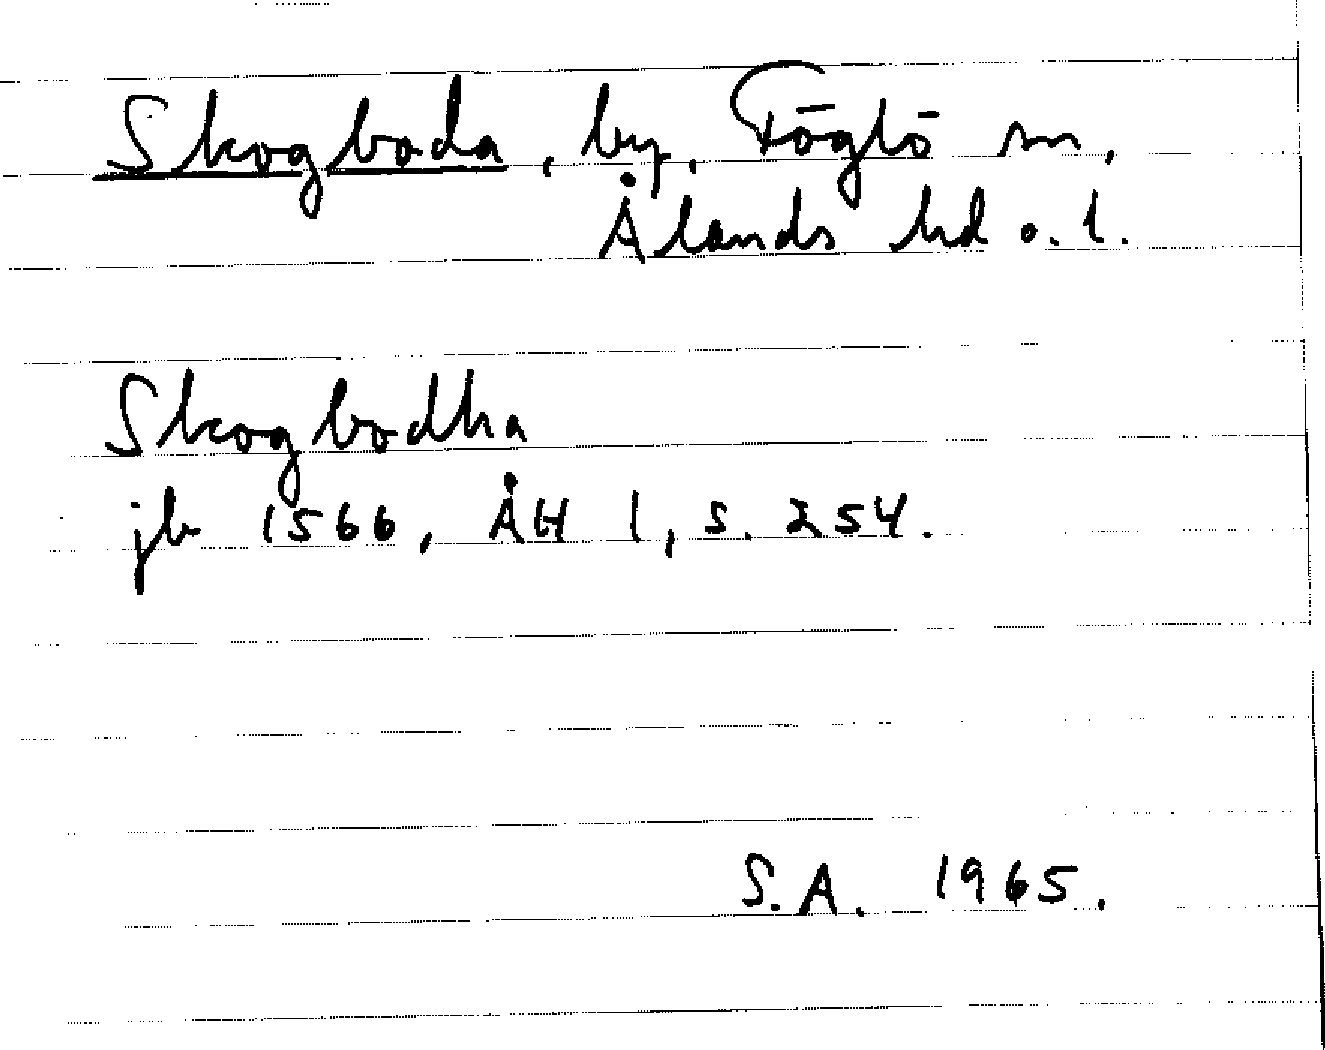 Skogboda, by, Föglö sn,
Ålands hd o. l.
Skogbodha
jb 1566, ÅH 1, s. 254.
S.A. 1965.